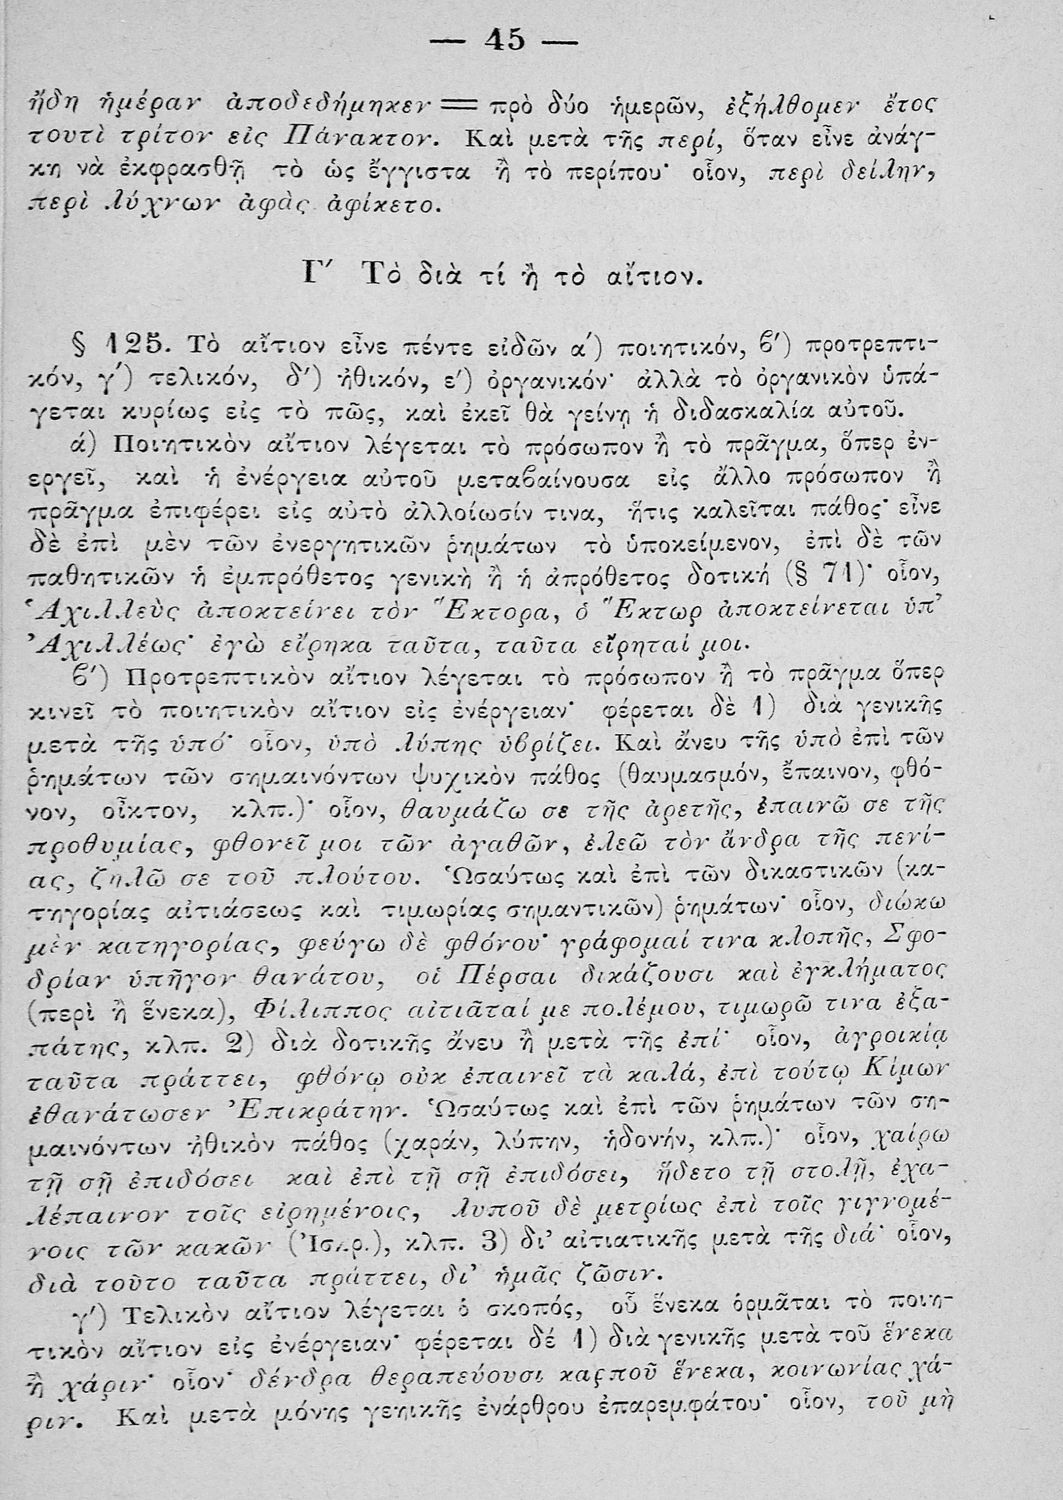 — 45 —
ἤδη ἡμέραν ἀποδεδήμηκεν = πρὸ δύο ἡμερῶν, ἐξήλθομεν ἔτος
τουτὶ τρίτον εἰς Πάνακτον. Καὶ μετὰ τῆς περί, ὅταν εἶνε ἀνάγ-
κη νὰ ἐκφρασθῇ τὸ ὡς ἔγγιστα ἢ τὸ περίπου· οἷον, περὶ δείλην,
περὶ λύχνων ἁφὰς ἀφίκετο.
Γ′ Τὸ διὰ τί ἢ τὸ αἴτιον.
§ 125. Τὸ αἴτιον εἶνε πέντε εἰδῶν α′) ποιητικόν, β′) προτρεπτι-
κόν, γ′) τελικόν, δ′) ἠθικόν, ε′) ὀργανικόν· ἀλλὰ τὸ ὀργανικὸν ὑπά-
γεται κυρίως εἰς τὸ πῶς, καὶ ἐκεῖ θὰ γείνῃ ἡ διδασκαλία αὐτοῦ.
ά) Ποιητικὸν αἴτιον λέγεται τὸ πρόσωπον ἢ τὸ πρᾶγμα, ὅπερ ἐν-
εργεῖ, καὶ ἡ ἐνέργεια αὐτοῦ μεταβαίνουσα εἰς ἄλλο πρόσωπον ἢ
πρᾶγμα ἐπιφέρει εἰς αὐτὸ ἀλλοίωσίν τινα, ἥτις καλεῖται πάθος· εἶνε
δὲ ἐπὶ μὲν τῶν ἐνεργητικῶν ῥημάτων τὸ ὑποκείμενον, ἐπὶ δὲ τῶν
παθητικῶν ἡ ἐμπρόθετος γενικὴ ἢ ἡ ἀπρόθετος δοτική (§ 71)· οἷον,
Ἁχιλλεὺς ἀποκτείνει τὸν Ἕκτορα, ὁ Ἕκτωρ ἀποκτείνεται ὑπ’
Ἀχιλλέως· ἐγὼ εἴρηκα ταῦτα, ταῦτα εἴρηταί μοι.
β′) Προτρεπτικὸν αἴτιον λέγεται τὸ πρόσωπον ἢ τὸ πρᾶγμα ὅπερ
κινεῖ τὸ ποιητικὸν αἴτιον εἰς ἐνέργειαν· φέρεται δὲ 1) διὰ γενικῆς
μετὰ τῆς ὑπό· οἷον, ὑπὸ λύπης ὑβρίζει. Καὶ ἄνευ τῆς ὑπὸ ἐπὶ τῶν
ῥημάτων τῶν σημαινόντων ψυχικὸν πάθος (θαυμασμόν, ἔπαινον, φθό-
νον, οἶκτον, κλπ.)· οἷον, θαυμάζω σε τῆς ἀρετῆς, ἐπαινῶ σε τῆς
προθυμίας, φθονεῖ μοι τῶν ἀγαθῶν, ἐλεῶ τὸν ἄνδρα τῆς πενί-
ας, ζηλῶ σε τοῦ πλούτου. Ὡσαύτως καὶ ἐπὶ τῶν δικαστικῶν (κα-
τηγορίας αἰτιάσεως καὶ τιμωρίας σημαντικῶν) ῥημάτων· οἷον, διώκω
μὲν κατηγορίας, φεύγω δὲ φθόνου· γράφομαί τινα κλοπῆς, Σφο-
δρίαν ὑπῆγον θανάτου, οἱ Πέρσαι δικάζουσι καὶ ἐγκλήματος
(περὶ ἢ ἕνεκα), Φίλιππος αἰτιᾶταί με πολέμου, τιμωρῶ τινα ἐξα-
πάτης, κλπ. 2) διὰ δοτικῆς ἄνευ ἢ μετὰ τῆς ἐπί· οἷον, ἀγροικίᾳ
ταῦτα πράττει, φθόνῳ οὐκ ἐπαινεῖ τὰ καλά, ἐπὶ τούτῳ Κίμων
ἐθανάτωσεν Ἐπικράτην. Ὡσαύτως καὶ ἐπὶ τῶν ῥημάτων τῶν ση-
μαινόντων ἠθικὸν πάθος (χαράν, λύπην, ἡδονήν, κλπ.)· οἷον, χαίρω
τῇ σῇ ἐπιδόσει καὶ ἐπὶ τῇ σῇ ἐπιδόσει, ἥδετο τῇ στολῇ, ἐχα-
λέπαινον τοῖς εἰρημένοις, λυποῦ δὲ μετρίως ἐπὶ τοῖς γιγνομέ-
νοις τῶν κακῶν (Ἰσκρ.), κλπ. 3) δι’ αἰτιατικῆς μετὰ τῆς διά· οἷον,
διὰ τοῦτο ταῦτα πράττει, δι’ ἡμᾶς ζῶσιν.
γ′) Τελικὸν αἴτιον λέγεται ὁ σκοπός, οὗ ἕνεκα ὁρμᾶται τὸ ποιη-
τικὸν αἴτιον εἰς ἐνέργειαν· φέρεται δέ 1) διὰ γενικῆς μετὰ τοῦ ἕνεκα
ἢ χάριν· οἷον· δένδρα θεραπεύουσι καρποῦ ἕνεκα, κοινωνίας χά-
ριν. Καὶ μετὰ μόνης γενικῆς ἐνάρθρου ἐπαρεμφάτου· οἷον, τοῦ μὴ